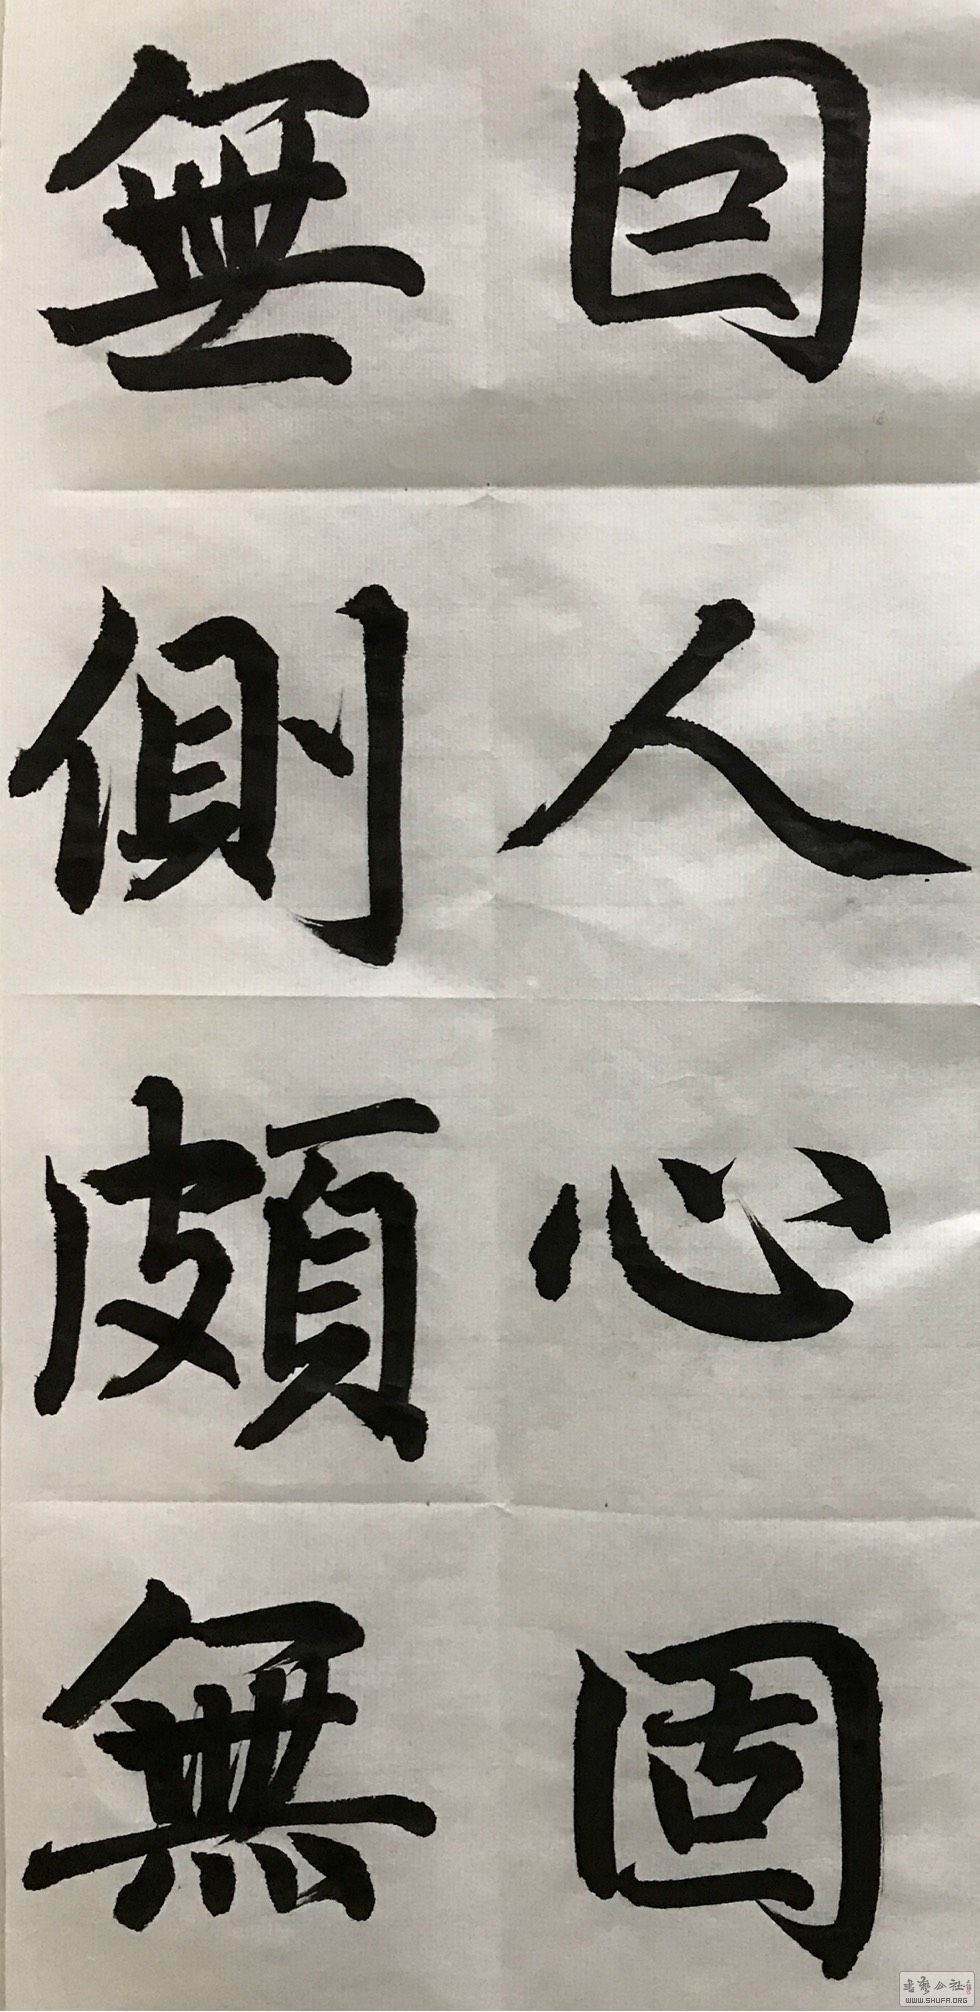 回人心固
無側頗無
書藝公社
WWW.SHUFA.ORG